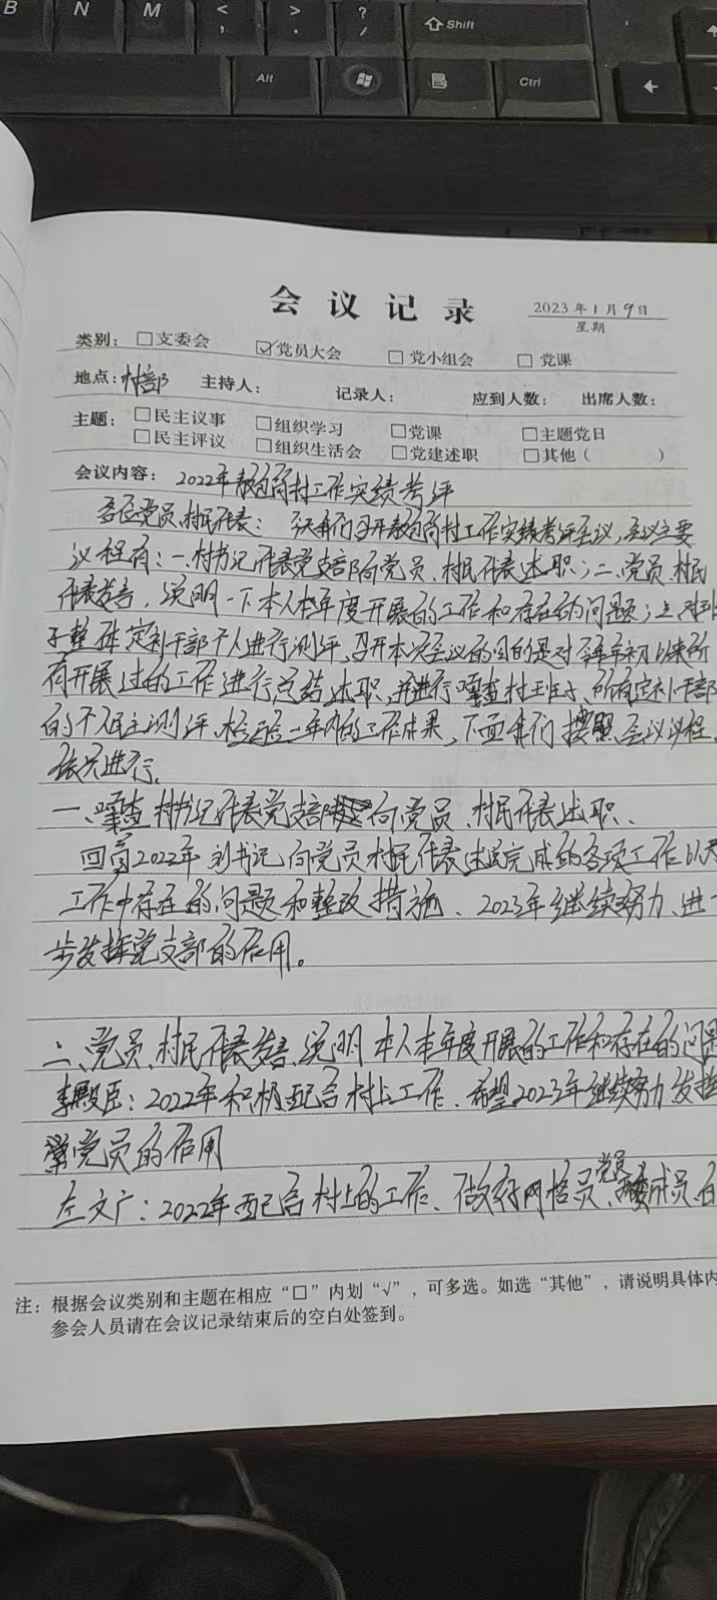 B N M < , > . ? / Shift
Alt Ctrl
会议记录
2023年1月9日
星期
类别：□支委会 ☑党员大会 □党小组会 □党课
地点：村部 主持人： 记录人： 应到人数： 出席人数：
主题：□民主议事 □组织学习 □党课 □主题党日
□民主评议 □组织生活会 □党建述职 □其他（ ）
会议内容：2022年 村工作实绩考评
各位党员、村民代表：今天我们召开 村工作实绩考评会议，会议主要
议程有：一、村书记代表党支部向党员、村民代表述职；二、党员、村民
代表发言，说明一下本人本年度开展的工作和存在的问题；三、对班
子整体、定补干部个人进行测评，召开本次会议的目的是对 年初以来所
有开展过的工作进行总结述职，并进行 村班子、所有定补干部
的个人民主测评，检验一年内的工作成果，下面我们按照会议议程，
依次进行。
一、 村书记代表党支部 向党员、村民代表述职、
回首2022年刘书记向党员村民代表述说完成的各项工作以及
工作中存在的问题和整改措施、2023年继续努力、进一
步发挥党支部的作用。
二、党员、村民代表发言、说明本人本年度开展的工作和存在的问题
李殿臣：2022年积极配合村上工作、希望2023年继续努力发挥
党员的作用
左文广：2022年配合村上的工作、做好网格员、党员、 成员
注：根据会议类别和主题在相应“□”内划“√”，可多选。如选“其他”，请说明具体内
参会人员请在会议记录结束后的空白处签到。